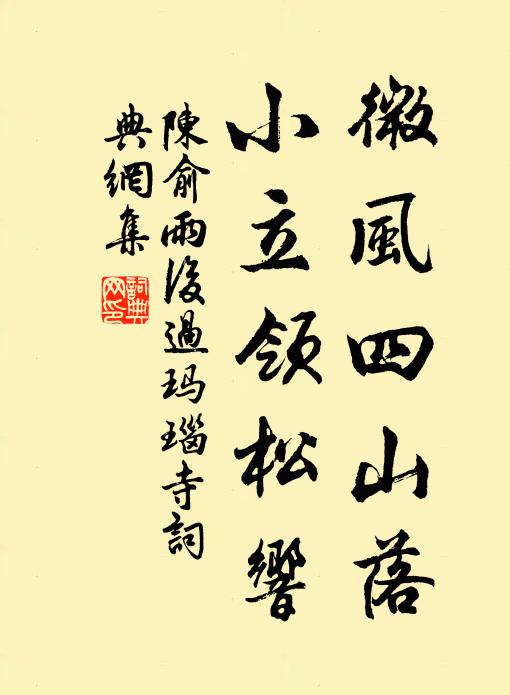 微風四山落
小立領松響
陳俞雨後過玛瑙寺詞
典網集
詞典网印